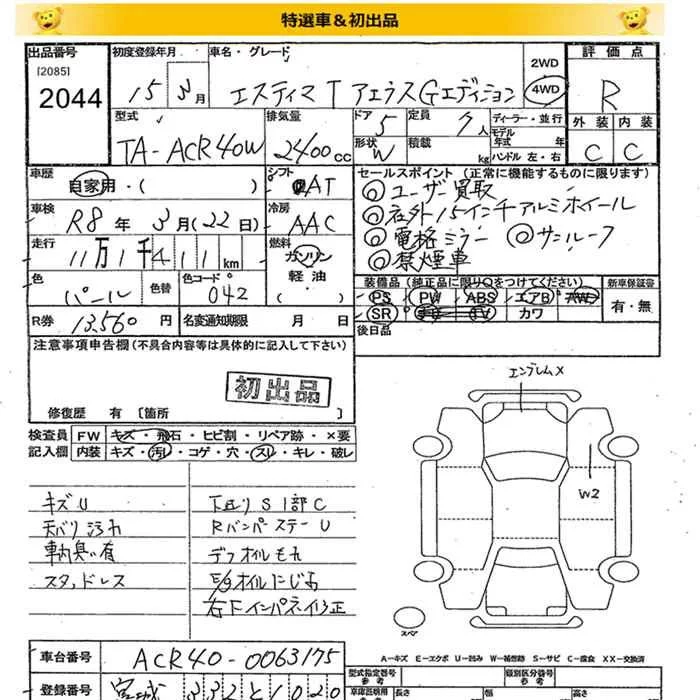 特選車&初出品
出品番号 初度登録年月 車名・グレード 評価点
[2085] 2WD
2044 15 3月 エスティマ T アエラスGエディション 4WD R
型式 排気量 ドア 定員 ディーラー・並行 外装 内装
5 7人 モデル年式 年
TA-ACR40W 2400cc 形状 W 積載 kg ハンドル 左・右 C C
車歴 シフト セールスポイント(正常に機能するものに限ります)
自家用・( ) AT ◎ユーザー買取
車検 冷房 ◎社外15インチアルミホイール
R8年 3月(22日) AAC
走行 燃料 ◎電格ミラー ◎サンルーフ
11万1千411km ガソリン ◎禁煙車
色 色替 色コード 軽油 装備品(純正品に限りOをつけてください) 新車保証書
パール 042 ( ・ ) PS PW ABS エアB AW 有・無
R券 13,560円 名変通知期限 月 日 SR TV カワ
注意事項申告欄(不具合内容等は具体的に記入して下さい) 後日品
初出品 エンブレムX
修復歴 有 [箇所 ]
検査員 FW キズ・飛石・ヒビ割・リペア跡・×要
記入欄 内装 キズ・汚レ・コゲ・穴・スレ・キレ・破レ
W2
キズU 下廻りS1部C
天バリ汚れ RバンパーステーU
車内臭い有 デフオイルもれ
スタッドレス E/gオイルにじみ
右下インパネイ修正
スペア
A-キズ E-エクボ U-凹み W-補修跡 S-サビ C-腐食 XX-交換済
車台番号 ACR40-0063175 型式指定番号 参考 級別区分番号 参考
登録番号 宮城 332 と 1020 車庫証明用 参考 長さ 幅 高さ